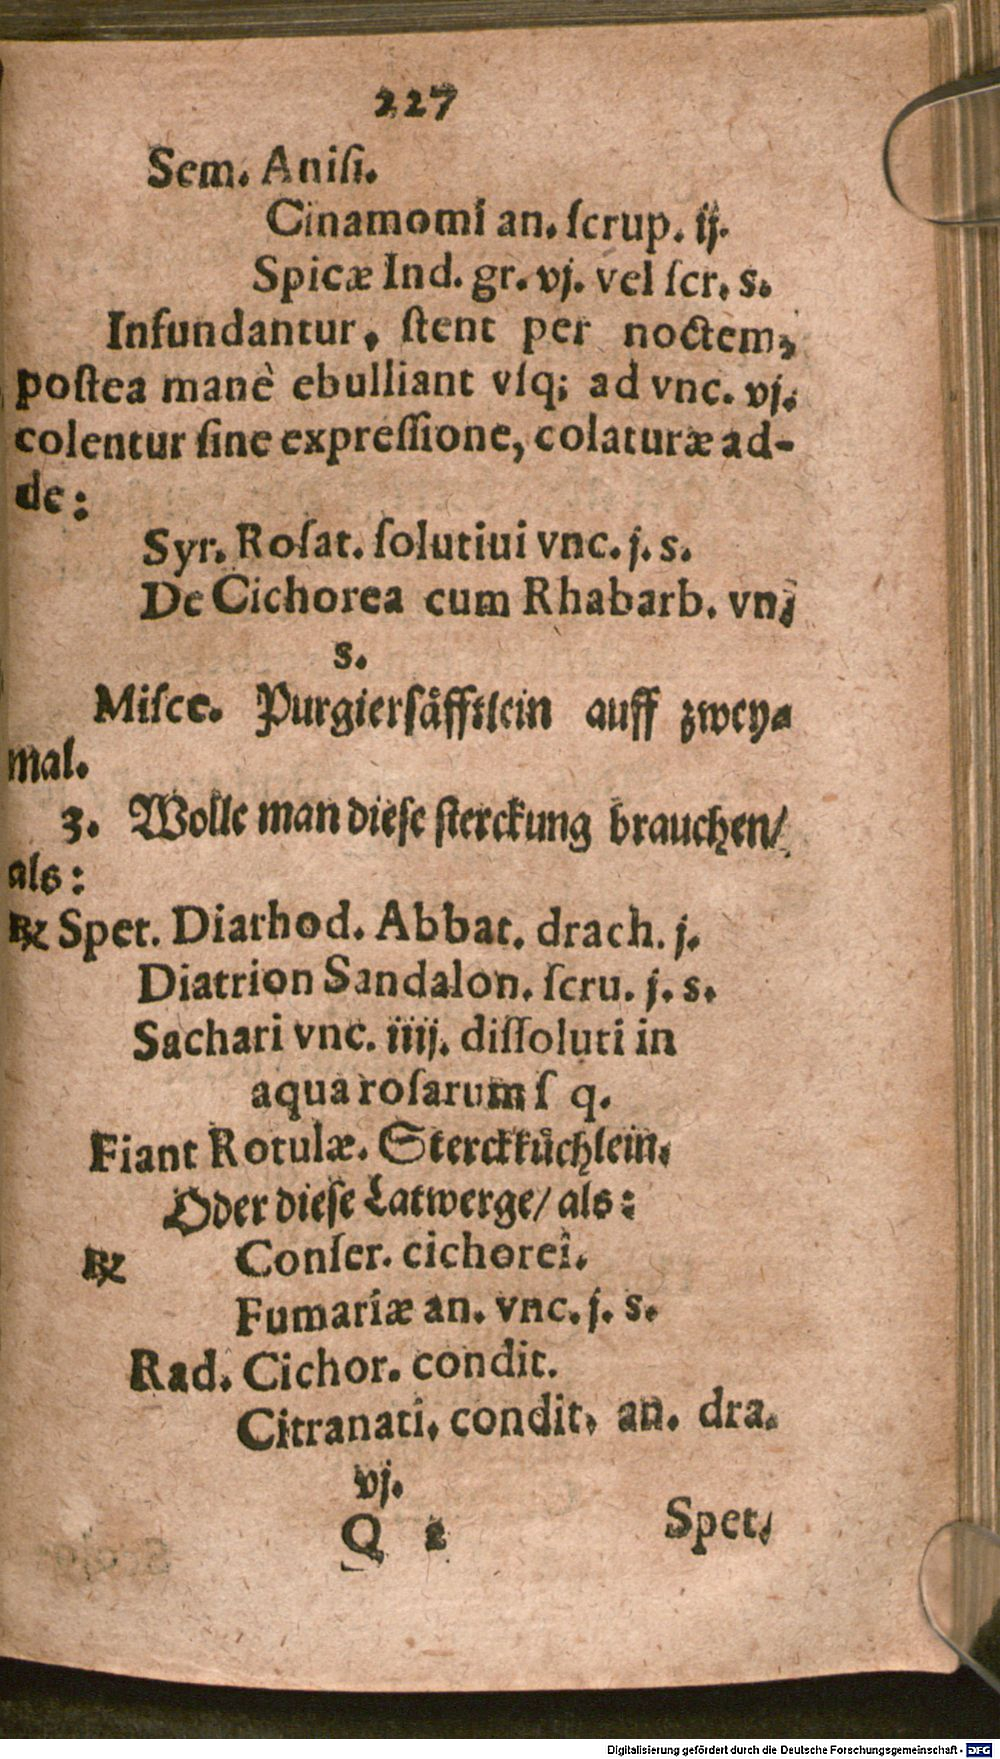 227
Sem. Aniſi.
Cinamomi an. ſcrup. ij.
Spicæ Ind. gr. vj. vel ſcr. s.
Infundantur, ſtent per noctem,
poſtea manè ebulliant vſq; ad vnc. vj.
colentur ſine expreſſione, colaturæ ad-
de:
Syr. Roſat. ſolutiui vnc. j. s.
De Cichorea cum Rhabarb. vn.
s.
Miſce. Purgierſåfftlein auff zwey-
mal.
3. Wolle man dieſe ſterckung brauchen/
als:
℞ Spet. Diarhod. Abbat. drach. j.
Diatrion Sandalon. ſcru. j. s.
Sachari vnc. iiij. diſſoluti in
aqua roſarum ſ q.
Fiant Rotulæ. Sterckkůchlein.
Oder dieſe Latwerge/ als:
℞ Conſer. cichorei.
Fumariæ an. vnc. j. s.
Rad. Cichor. condit.
Citranati. condit. an. dra.
vj.
Q 2 Spet.
Digitalisierung gefördert durch die Deutsche Forschungsgemeinschaft - DFG